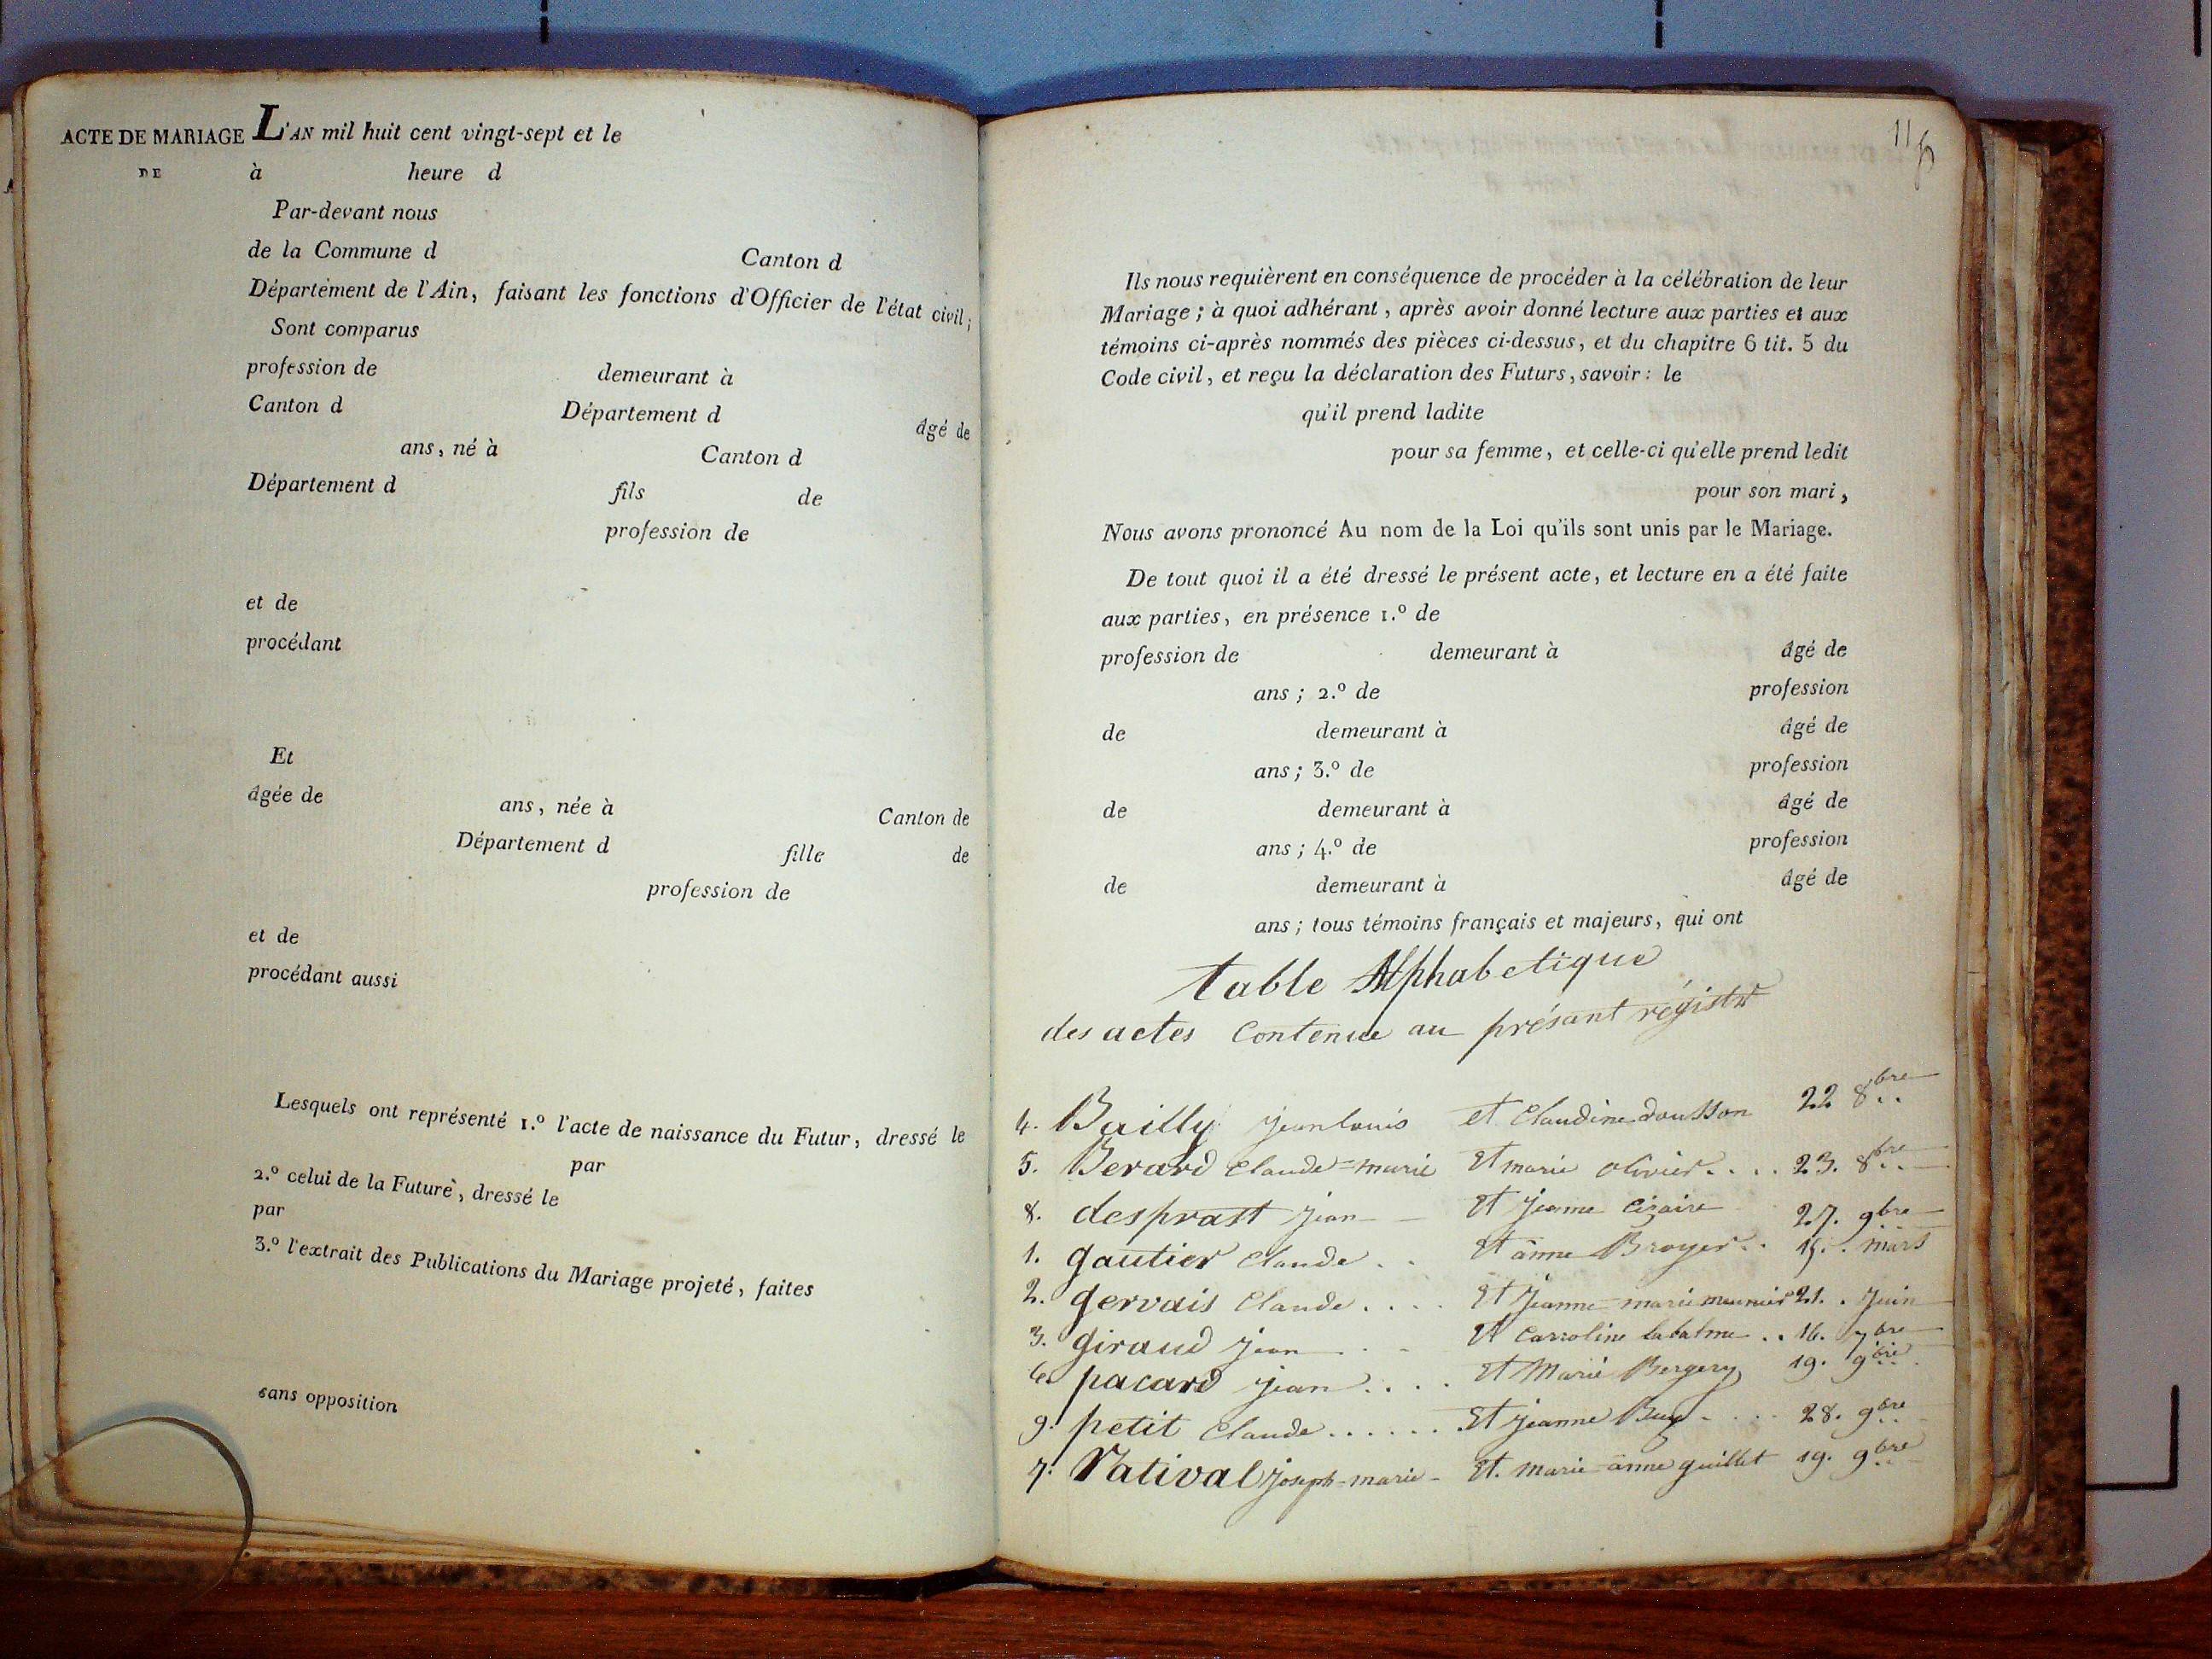 ACTE DE MARIAGE L'AN mil huit cent vingt-sept et le
DE à heure d
Par-devant nous
de la Commune d Canton d
Département de l'Ain, faisant les fonctions d'Officier de l'état civil;
Sont comparus
profession de demeurant à
Canton d Département d âgé de
ans, né à Canton d
Département d fils de
profession de
et de
procédant
Et
âgée de ans, née à Canton de
Département d fille de
profession de
et de
procédant aussi
Lesquels ont représenté 1.º l'acte de naissance du Futur, dressé le
par
2.º celui de la Future, dressé le
par
3.º l'extrait des Publications du Mariage projeté, faites
sans opposition
11
Ils nous requièrent en conséquence de procéder à la célébration de leur
Mariage; à quoi adhérant, après avoir donné lecture aux parties et aux
témoins ci-après nommés des pièces ci-dessus, et du chapitre 6 tit. 5 du
Code civil, et reçu la déclaration des Futurs, savoir: le
qu'il prend ladite
pour sa femme, et celle-ci qu'elle prend ledit
pour son mari,
Nous avons prononcé Au nom de la Loi qu'ils sont unis par le Mariage.
De tout quoi il a été dressé le présent acte, et lecture en a été faite
aux parties, en présence 1.º de
profession de demeurant à âgé de
ans; 2.º de profession
de demeurant à âgé de
ans; 3.º de profession
de demeurant à âgé de
ans; 4.º de profession
de demeurant à âgé de
ans; tous témoins français et majeurs, qui ont
table Alphabetique
des actes Contenue au présant régistre
4. Bailly jean louis et Claudine 22 8bre
5. Berard Claude-marie Et marie olivier.... 23. 8bre
8. desprast jean Et jeanne Cizaire 27. 9bre
1. gautier Claude.. Et anne Broyer.. mars
2. gervais Claude.... Et jeanne-marie meunier 21.. juin
3. giraud jean Et Carroline labalme.. 16. 7bre
6. pacard jean.... Et Marie Bergery 19. 9bre
9. petit Claude...... Et jeanne Buy 28. 9bre
7. Vatival joseph-marie- Et. marie-anne guillet 19. 9bre